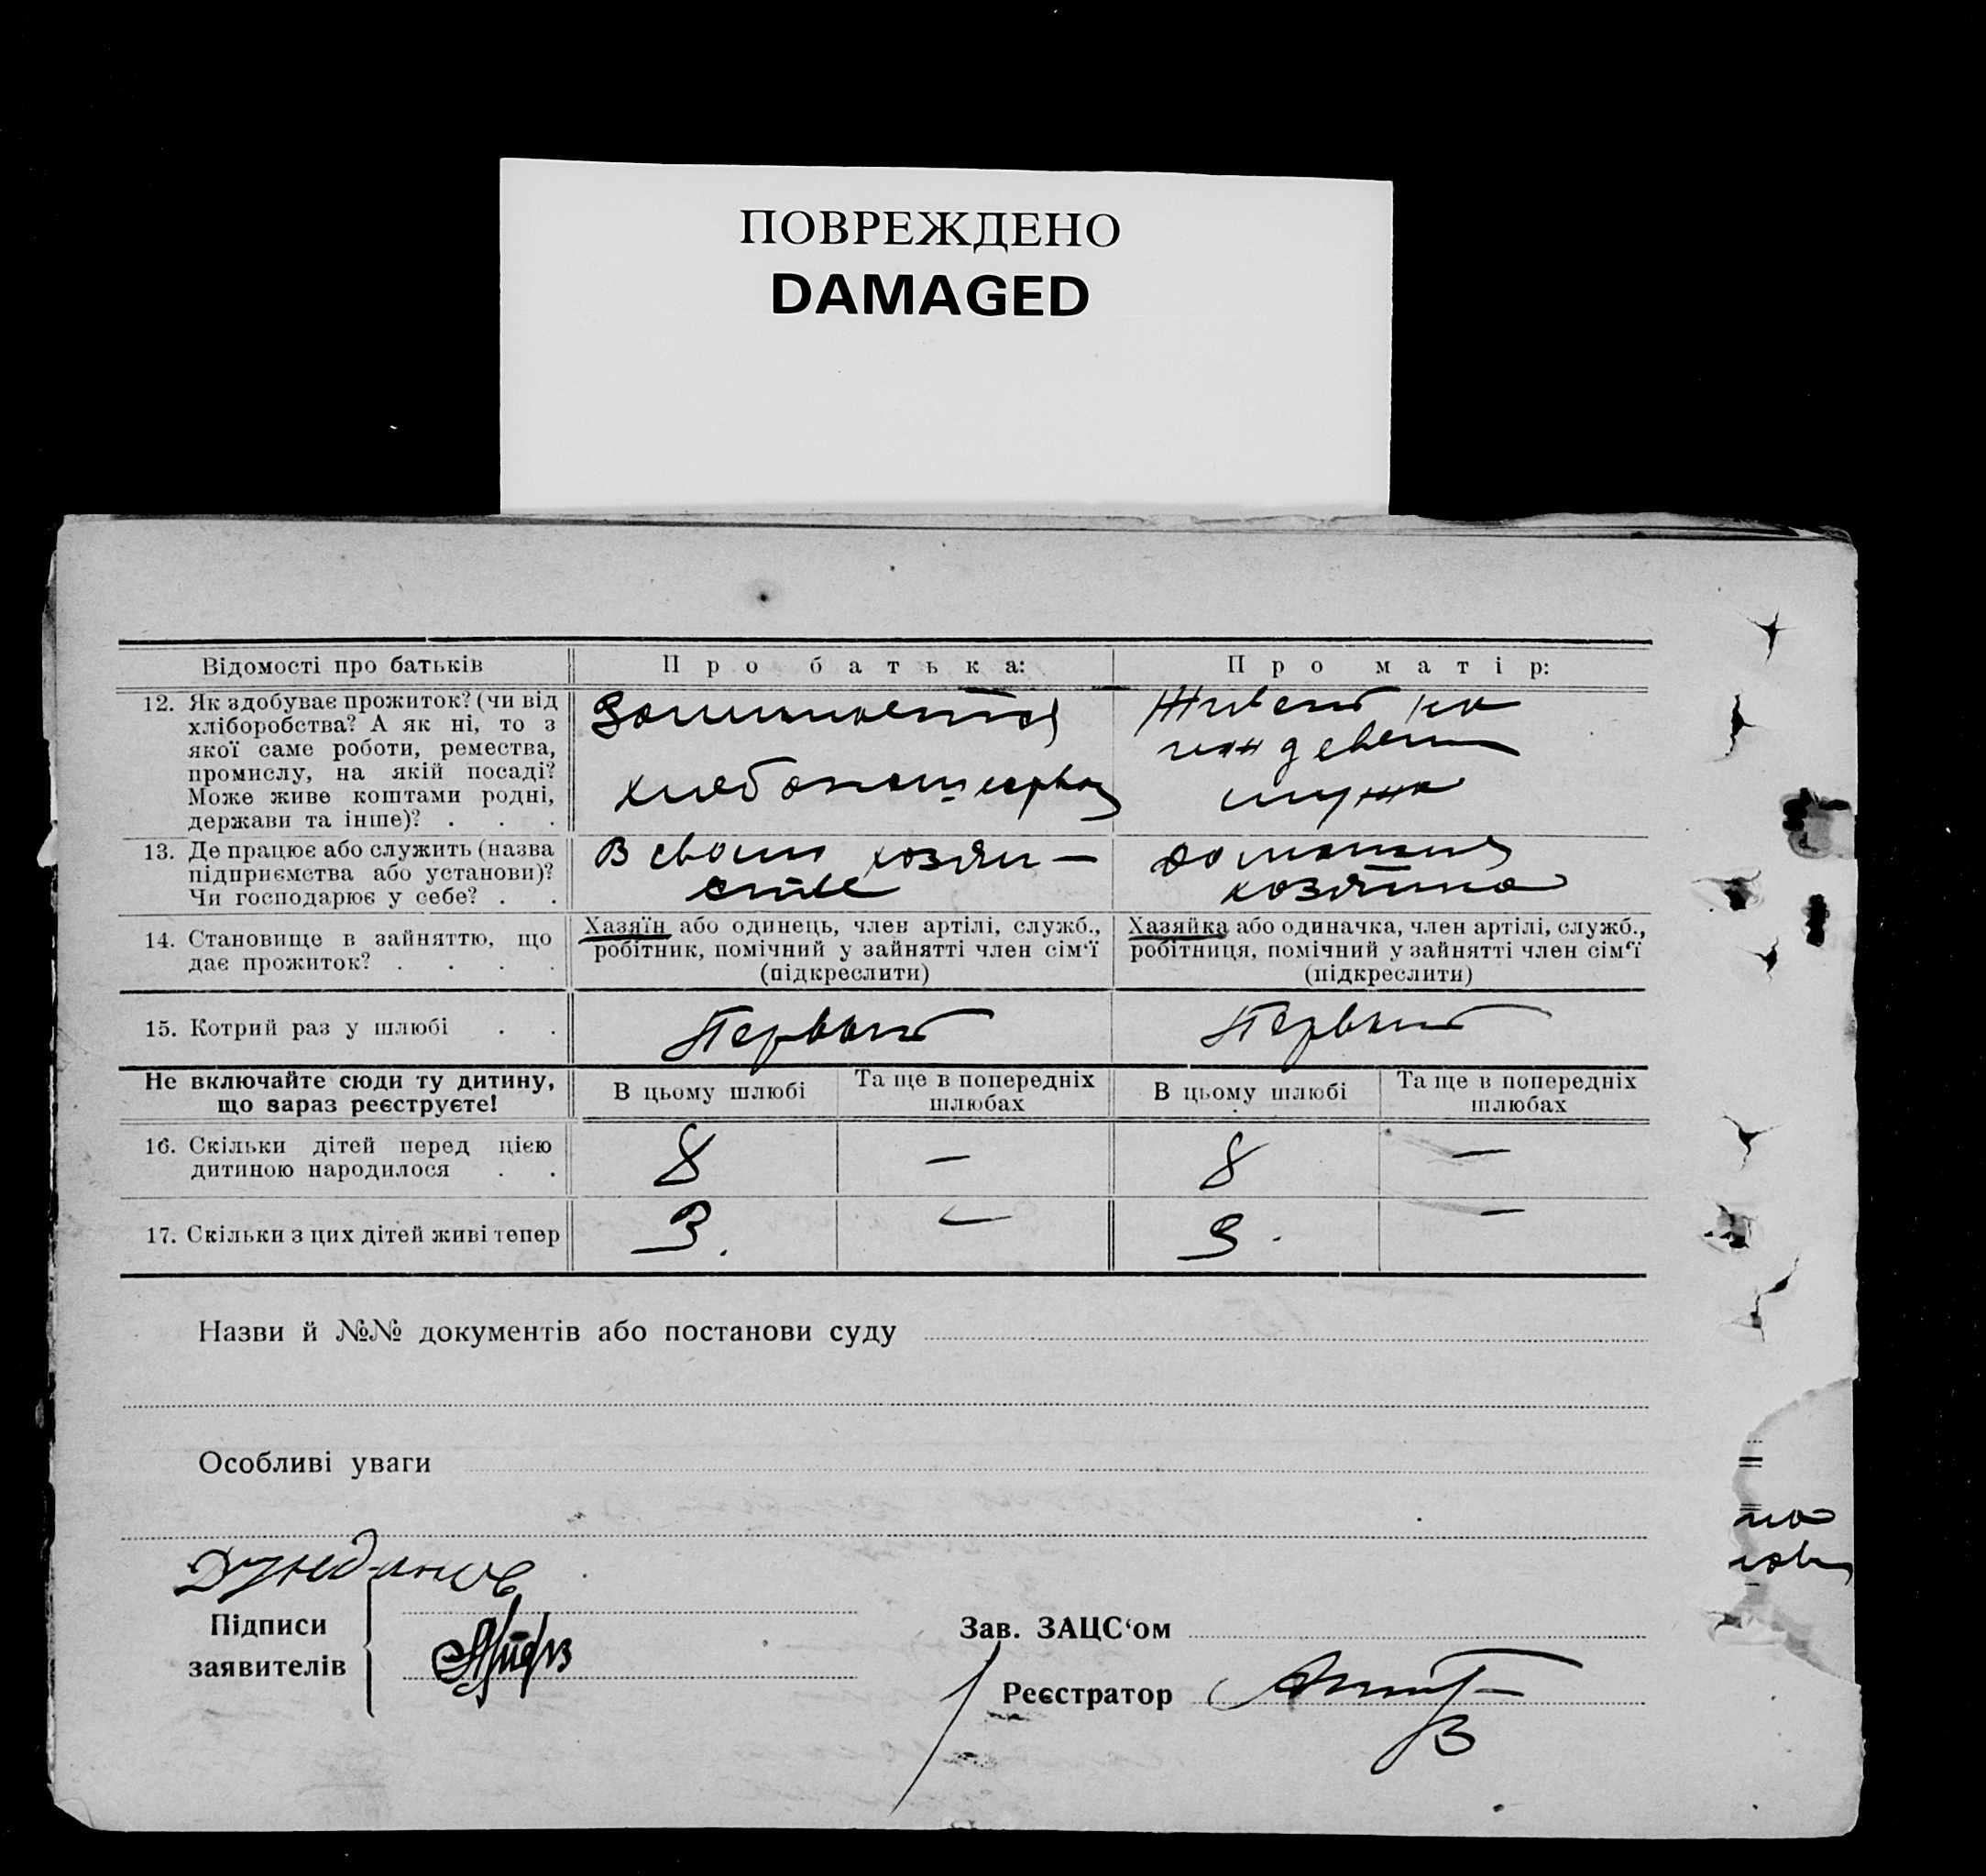 ПОВРЕЖДЕНО
DAMAGED
Відомості про батьків
Про батька:
Про матір:
12. Як здобуває прожиток? (чи від
хліборобства? А як ні, то з
якої саме роботи, ремества,
промислу, на якій посаді?
Може живе коштами родні,
держави та інше)? . . .
Занимается
хлебопашеством
Живет на
иждевении
мужа
13. Де працює або служить (назва
підприємства або установи)?
Чи господарює у себе? . .
В своем хозяй-
стве
домашняя
хозяйка
14. Становище в зайняттю, що
дає прожиток? . . . .
Хазяїн або одинець, член артілі, служб.,
робітник, помічний у зайнятті член сім‘ї
(підкреслити)
Хазяйка або одиначка, член артілі, служб.,
робітниця, помічний у зайнятті член сім‘ї
(підкреслити)
15. Котрий раз у шлюбі . .
Первый
Первый
Не включайте сюди ту дитину,
що зараз реєструєте!
В цьому шлюбі
Та ще в попередніх
шлюбах
В цьому шлюбі
Та ще в попередніх
шлюбах
16. Скільки дітей перед цією
дитиною народилося . .
8
—
8
—
17. Скільки з цих дітей живі тепер
3.
—
3.
—
Назви й №№ документів або постанови суду
Особливі уваги
Підписи
заявителів
Зав. ЗАЦС‘ом
Реєстратор